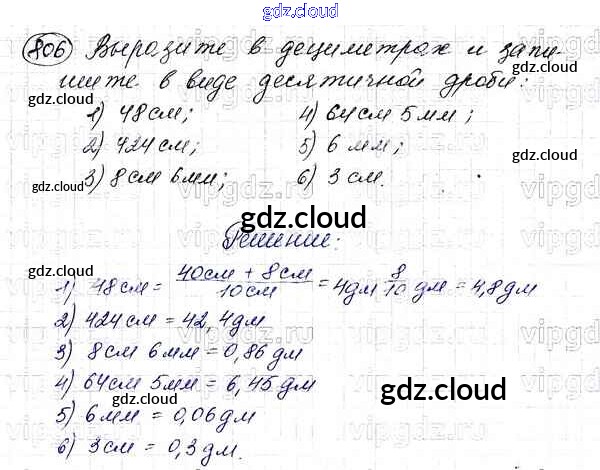 gdz.cloud
806 Выразите в дециметрах и запи-
шите в виде десятичной дроби:
1) 48 см; 4) 64 см 5 мм;
2) 424 см; 5) 6 мм;
3) 8 см 6 мм; 6) 3 см.
Решение:
1) 48 см = (40 см + 8 см)/(10 см) = 4 дм 8/10 дм = 4,8 дм
2) 424 см = 42,4 дм
3) 8 см 6 мм = 0,86 дм
4) 64 см 5 мм = 6,45 дм
5) 6 мм = 0,06 дм
6) 3 см = 0,3 дм.
gdz.cloud
gdz.cloud
gdz.cloud
gdz.cloud
gdz.cloud
gdz.cloud
gdz.cloud
gdz.cloud
gdz.cloud
gdz.cloud
gdz.cloud
gdz.cloud